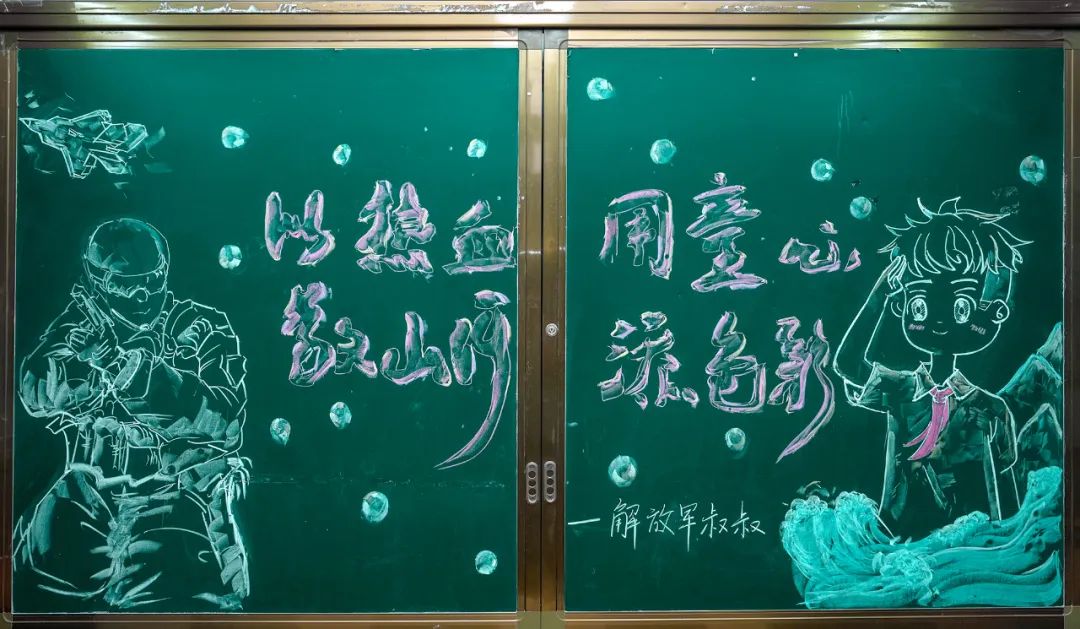 以热血
山河
用童心
添色彩
—解放军叔叔